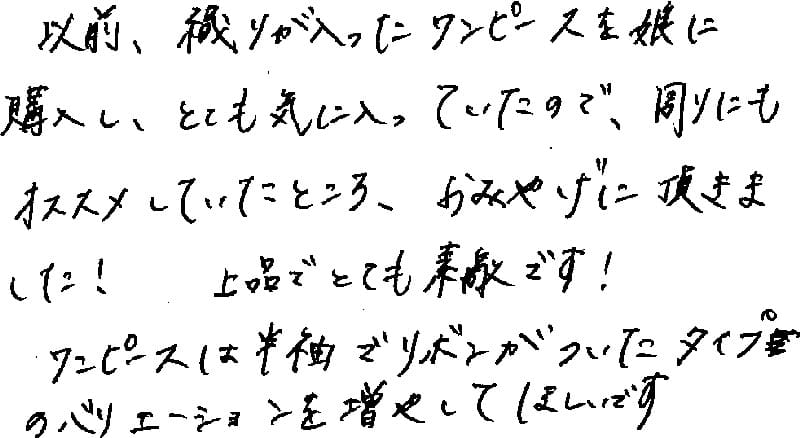 以前、織りが入ったワンピースを娘に
購入し、とても気に入っていたので、周りにも
オススメしていたところ、おみやげに頂きま
した！　上品でとても素敵です！
ワンピースは半袖でリボンがついたタイプ
のバリエーションを増やしてほしいです